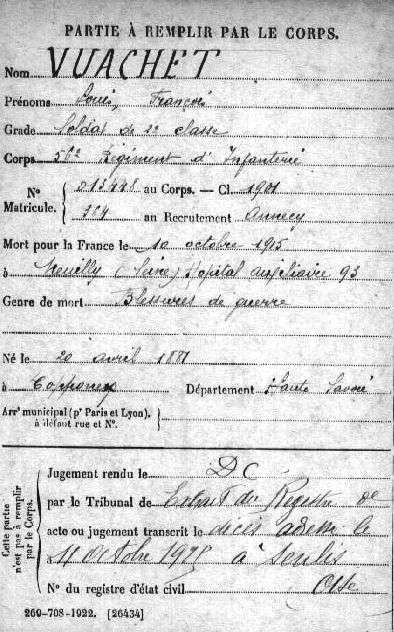 PARTIE À REMPLIR PAR LE CORPS.
Nom VUACHET
Prénoms Louis, François
Grade Soldat de 2e classe
Corps 56e Régiment d'Infanterie
Nº Matricule. { 013448 au Corps. — Cl. 1901
284 au Recrutement Annecy
Mort pour la France le 10 octobre 1915
à Neuilly (Seine) Hôpital auxiliaire 93
Genre de mort Blessures de guerre
Né le 20 avril 1881
à Copponex Département Haute Savoie
Arrt municipal (pr Paris et Lyon), à défaut rue et Nº. {
Cette partie n'est pas à remplir par le Corps.
Jugement rendu le DC
par le Tribunal de Extrait du Registre de
acte ou jugement transcrit le décès adressé le
11 Octobre 19 à Senlis
Nº du registre d'état civil Oise
269-708-1922. [26434]